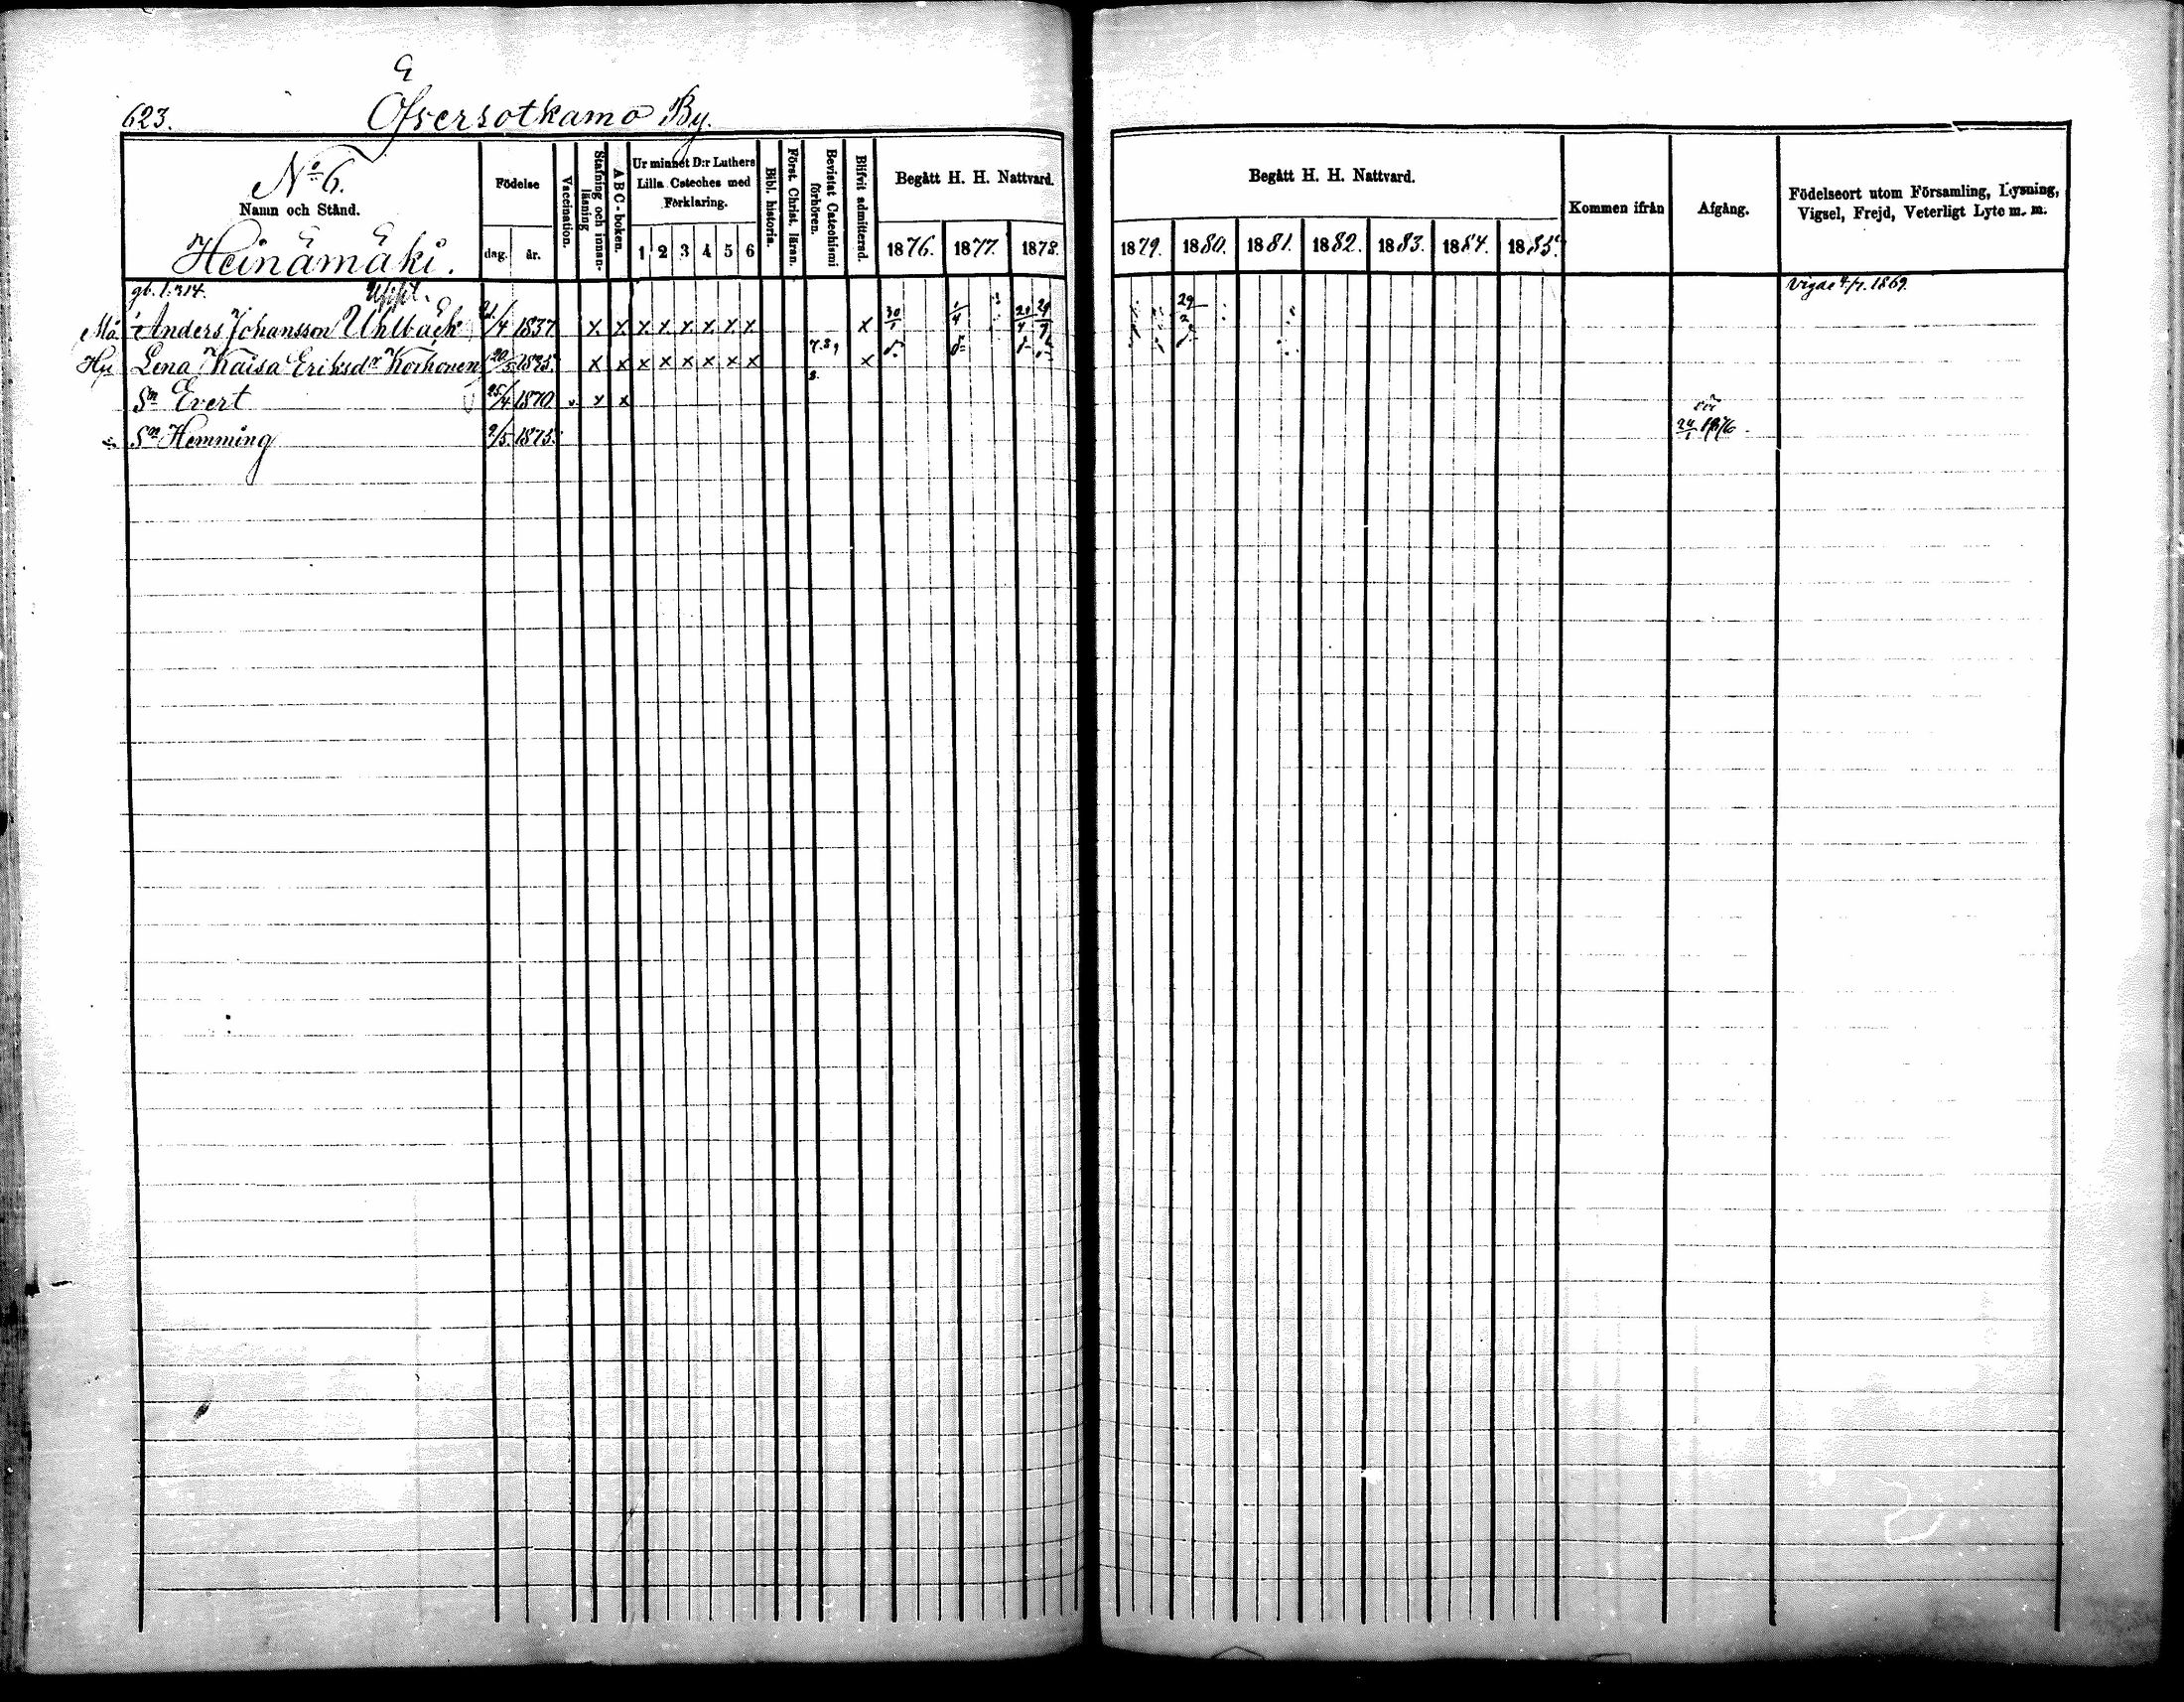 623. Öfversotkamo By.
No 6.
Namn och Stånd.
Heinämäki.
Födelse
dag. år.
Vaccination.
Stafning och innanläsning
A B C-boken.
Ur minnet D:r Luthers Lilla Cateches med Förklaring.
1 2 3 4 5 6
Bibl. historia.
Först. Christ. läran.
Bevistat Catechismi förhören.
Blifvit admitterad.
Begått H. H. Nattvard.
1876. 1877. 1878.
Begått H. H. Nattvard.
1879. 1880. 1881. 1882. 1883. 1884. 1885.
Kommen ifrån
Afgång.
Födelseort utom Församling, Lysning, Vigsel, Frejd, Veterligt Lyte m. m.
gb. 1. 314.
Vigde 4/7. 1869.
Må Anders Johansson Uhlbäck 21/4 1837 x x x x x x x x x 30/1 1/4 29/2
Hu Lena Kaisa Eriksdr Korhonen 20/5 1835. x x x x x x x x 7.8, x
8.
Sn Evert 25/4 1870 v. x x
Sn Hemming 9/5 1875. 24/1 1876.